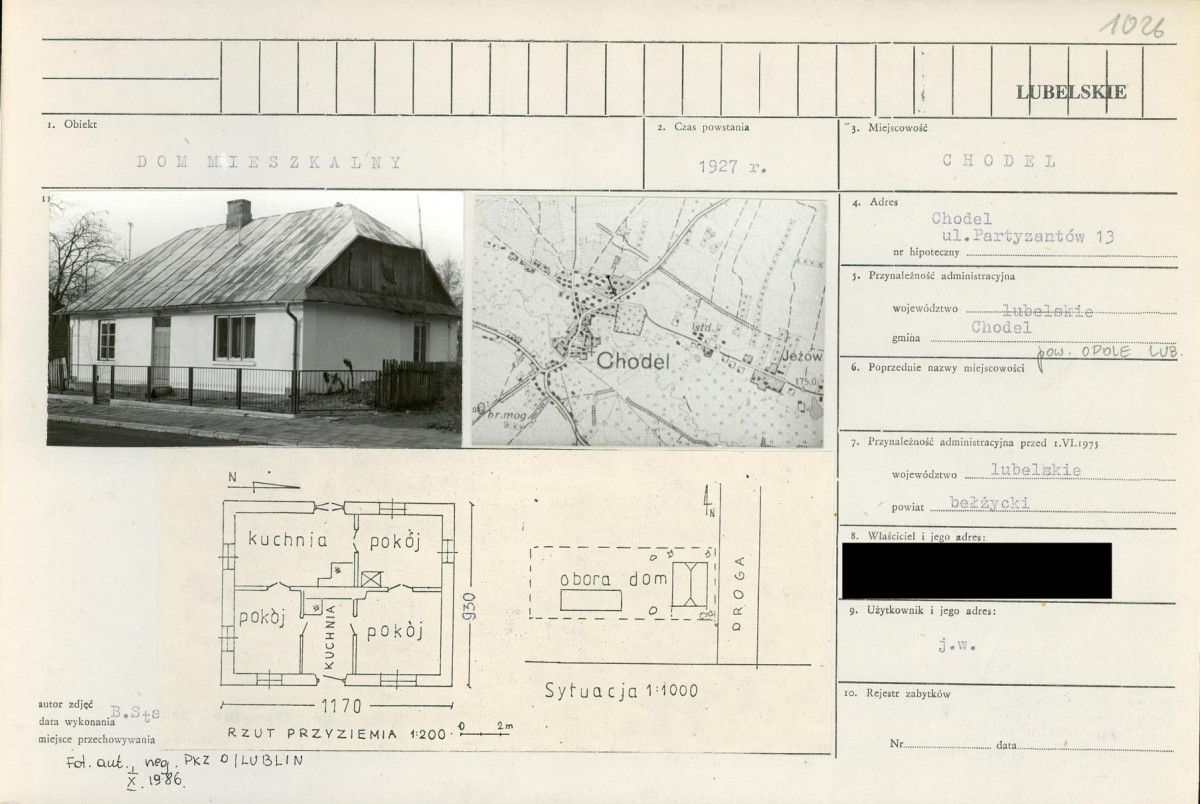 1026
LUBELSKIE
1. Obiekt
DOM MIESZKALNY
2. Czas powstania
1927 r.
3. Miejscowość
CHODEL
4. Adres
Chodel
ul.Partyzantów 13
nr hipoteczny
5. Przynależność administracyjna
województwo lubelskie
gmina Chodel
pow. OPOLE LUB.
6. Poprzednie nazwy miejscowości
7. Przynależność administracyjna przed 1.VI.1975
województwo lubelskie
powiat bełżycki
8. Właściciel i jego adres:
9. Użytkownik i jego adres:
j.w.
10. Rejestr zabytków
Nr data
11
Chodel
std.
Jeżów
175.0
br.mog.
N
kuchnia
pokój
pokój
KUCHNIA
pokój
930
1170
RZUT PRZYZIEMIA 1:200
0 2m
N
obora dom
DROGA
Sytuacja 1:1000
autor zdjęć B.Sta
data wykonania
miejsce przechowywania
Fot. aut., neg. PKZ O/LUBLIN
X. 1986.